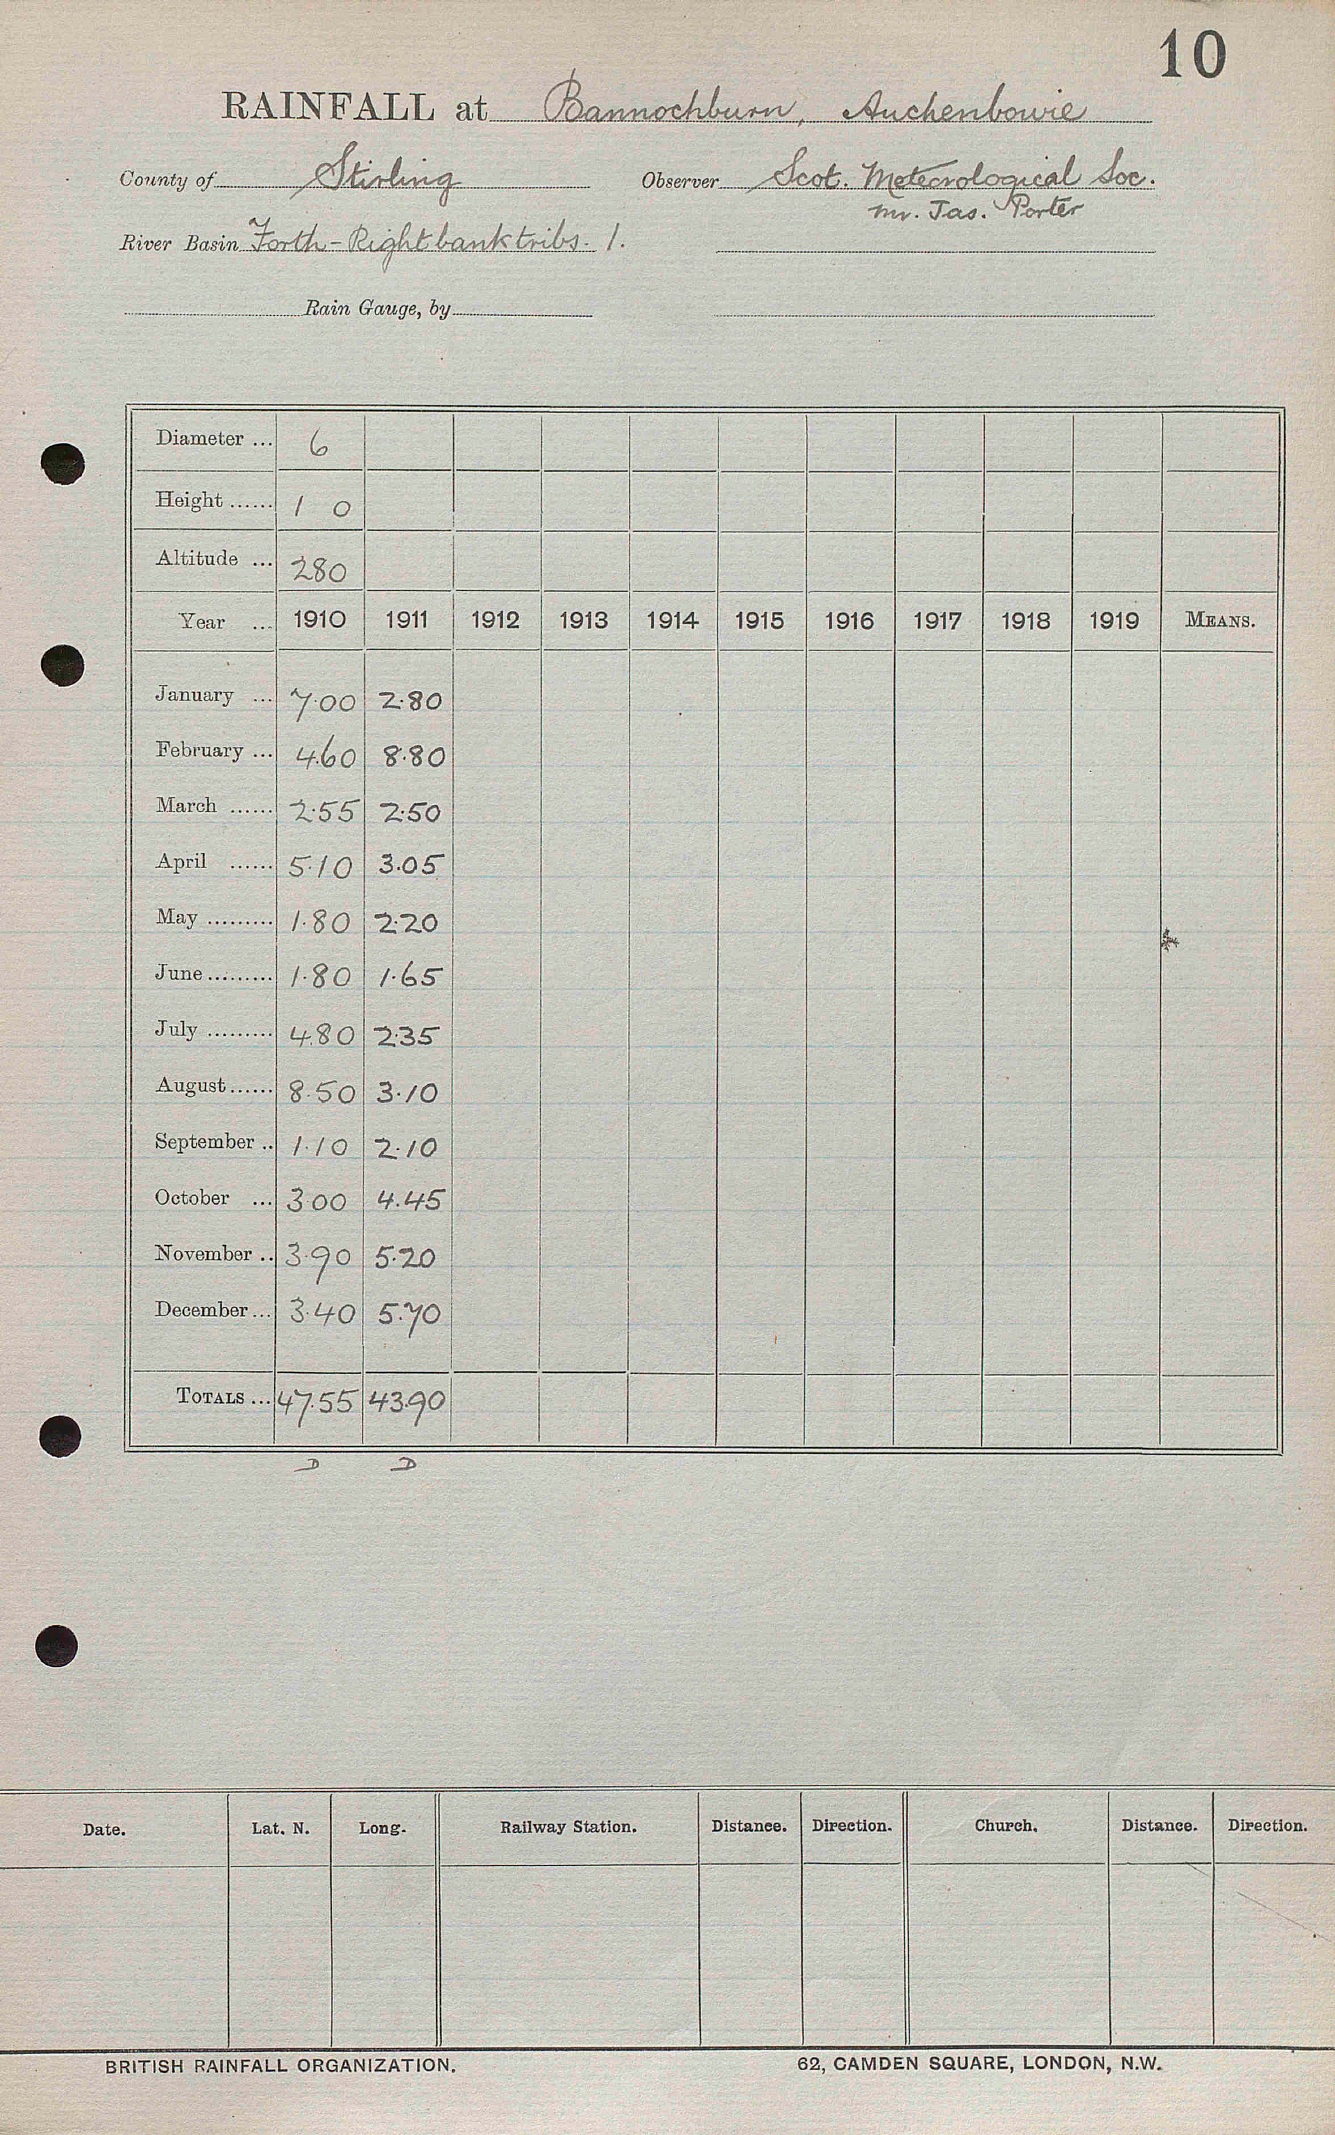 10
RAINFALL at Bannockburn, Auchenbowie
County of Stirling Observer Scot. Meteorological Soc.
Mr. Jas. Porter
River Basin Forth - Right bank tribs. 1.
Rain Gauge, by
Diameter ... 6
Height ...... 1 0
Altitude ... 280
Year ... 1910 1911 1912 1913 1914 1915 1916 1917 1918 1919 MEANS.
January ... 7.00 2.80
February ... 4.60 8.80
March ...... 2.55 2.50
April ...... 5.10 3.05
May ......... 1.80 2.20
June ......... 1.80 1.65
July ......... 4.80 2.35
August ...... 8.50 3.10
September .. 1.10 2.10
October ... 3.00 4.45
November .. 3.90 5.20
December ... 3.40 5.70
TOTALS ... 47.55 43.90
D D
Date. Lat. N. Long. Railway Station. Distance. Direction. Church. Distance. Direction.
BRITISH RAINFALL ORGANIZATION. 62, CAMDEN SQUARE, LONDON, N.W.